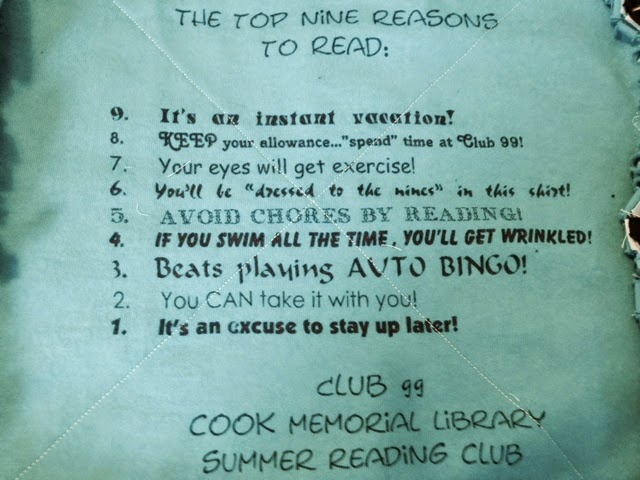 THE TOP NINE REASONS
TO READ:
9. It's an instant vacation!
8. KEEP your allowance..."spend" time at Club 99!
7. Your eyes will get exercise!
6. You'll be "dressed to the nines" in this shirt!
5. AVOID CHORES BY READING!
4. IF YOU SWIM ALL THE TIME, YOU'LL GET WRINKLED!
3. Beats playing AUTO BINGO!
2. You CAN take it with you!
1. It's an excuse to stay up later!
CLUB 99
COOK MEMORIAL LIBRARY
SUMMER READING CLUB